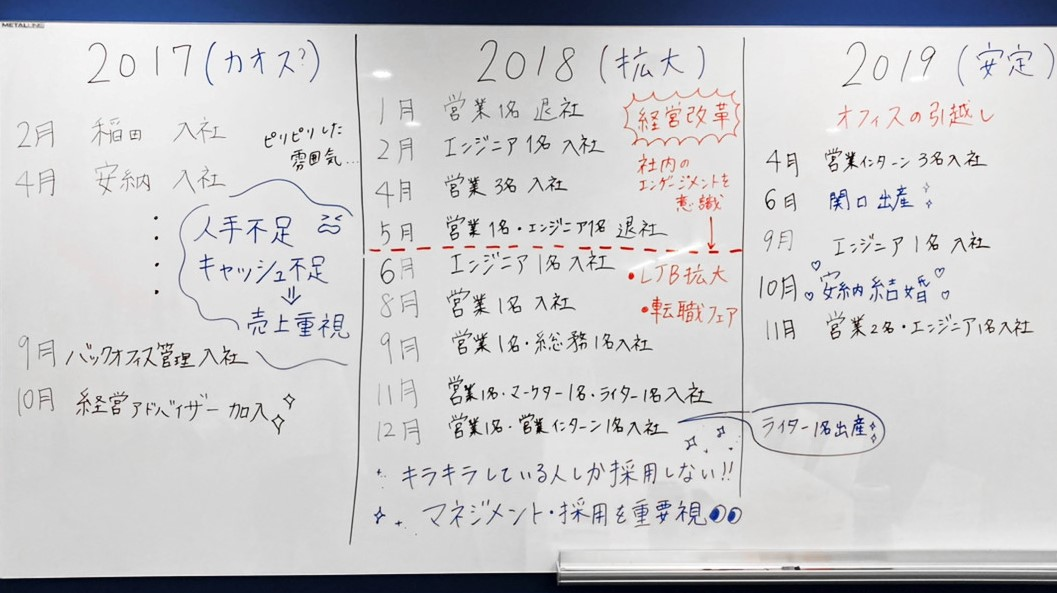 METALLINE
2017 (カオス?)
2月 稲田 入社
ピリピリした
雰囲気...
4月 安納 入社
人手不足
キャッシュ不足
⇓
売上重視
9月 バックオフィス管理 入社
10月 経営アドバイザー 加入
2018 (拡大)
1月 営業1名 退社
2月 エンジニア1名 入社
4月 営業3名 入社
5月 営業1名・エンジニア1名 退社
6月 エンジニア1名 入社
8月 営業1名 入社
9月 営業1名・総務1名入社
11月 営業1名・マーケター1名・ライター1名入社
12月 営業1名・営業インターン1名入社
経営改革
社内の
エンゲージメントを
意識
↓
・LJB拡大
・転職フェア
キラキラしている人しか採用しない!!
マネジメント・採用を重要視
2019 (安定)
オフィスの引越し
4月 営業インターン3名入社
6月 関口出産
9月 エンジニア1名入社
10月 ♡安納結婚♡
11月 営業2名・エンジニア1名入社
ライター1名出産